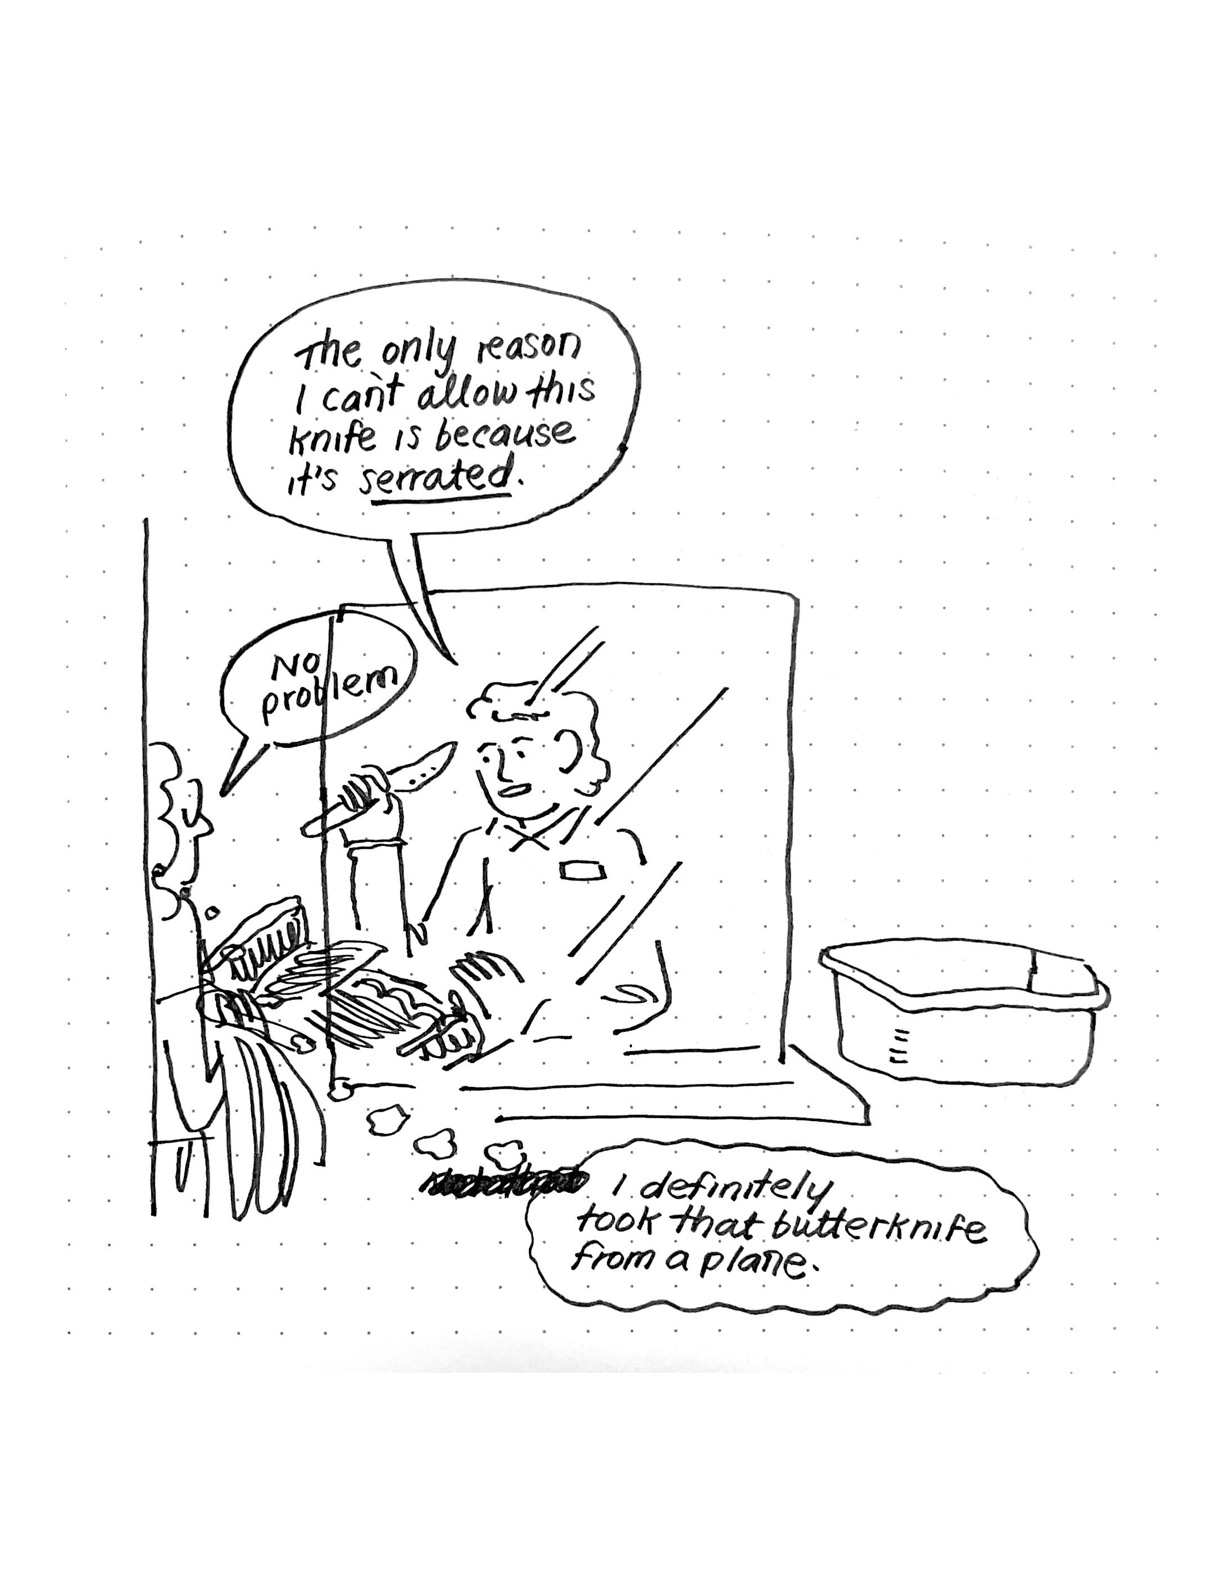 The only reason
I can't allow this
knife is because
it's serrated.
No
problem
I definitely
took that butterknife
from a plane.